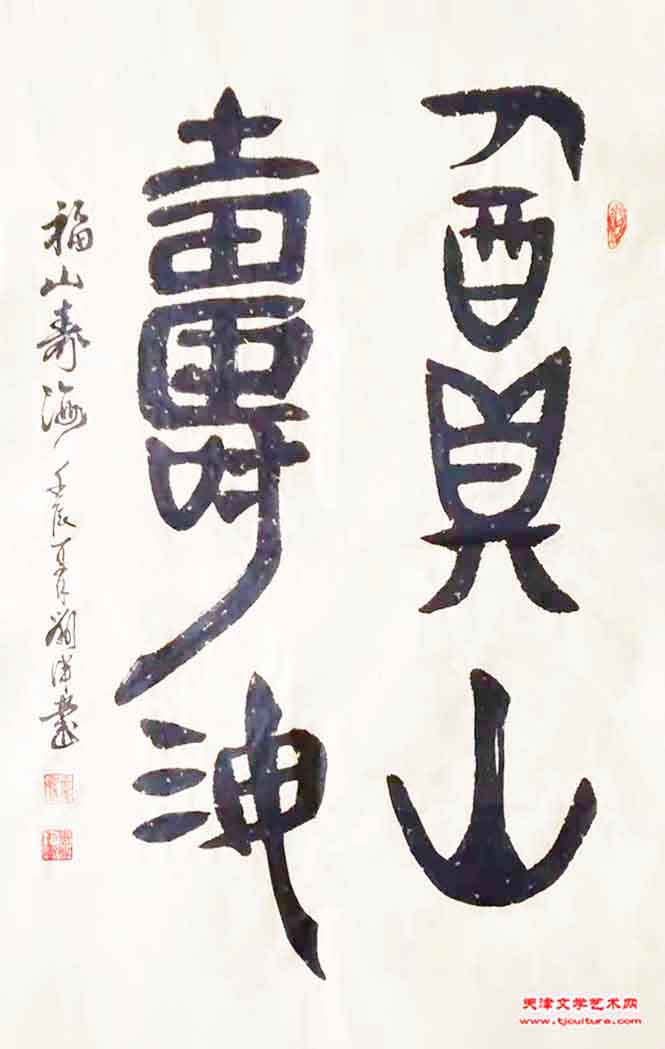 福山
壽海
福山寿海
壬辰夏月
天津文学艺术网
www.tjculture.com